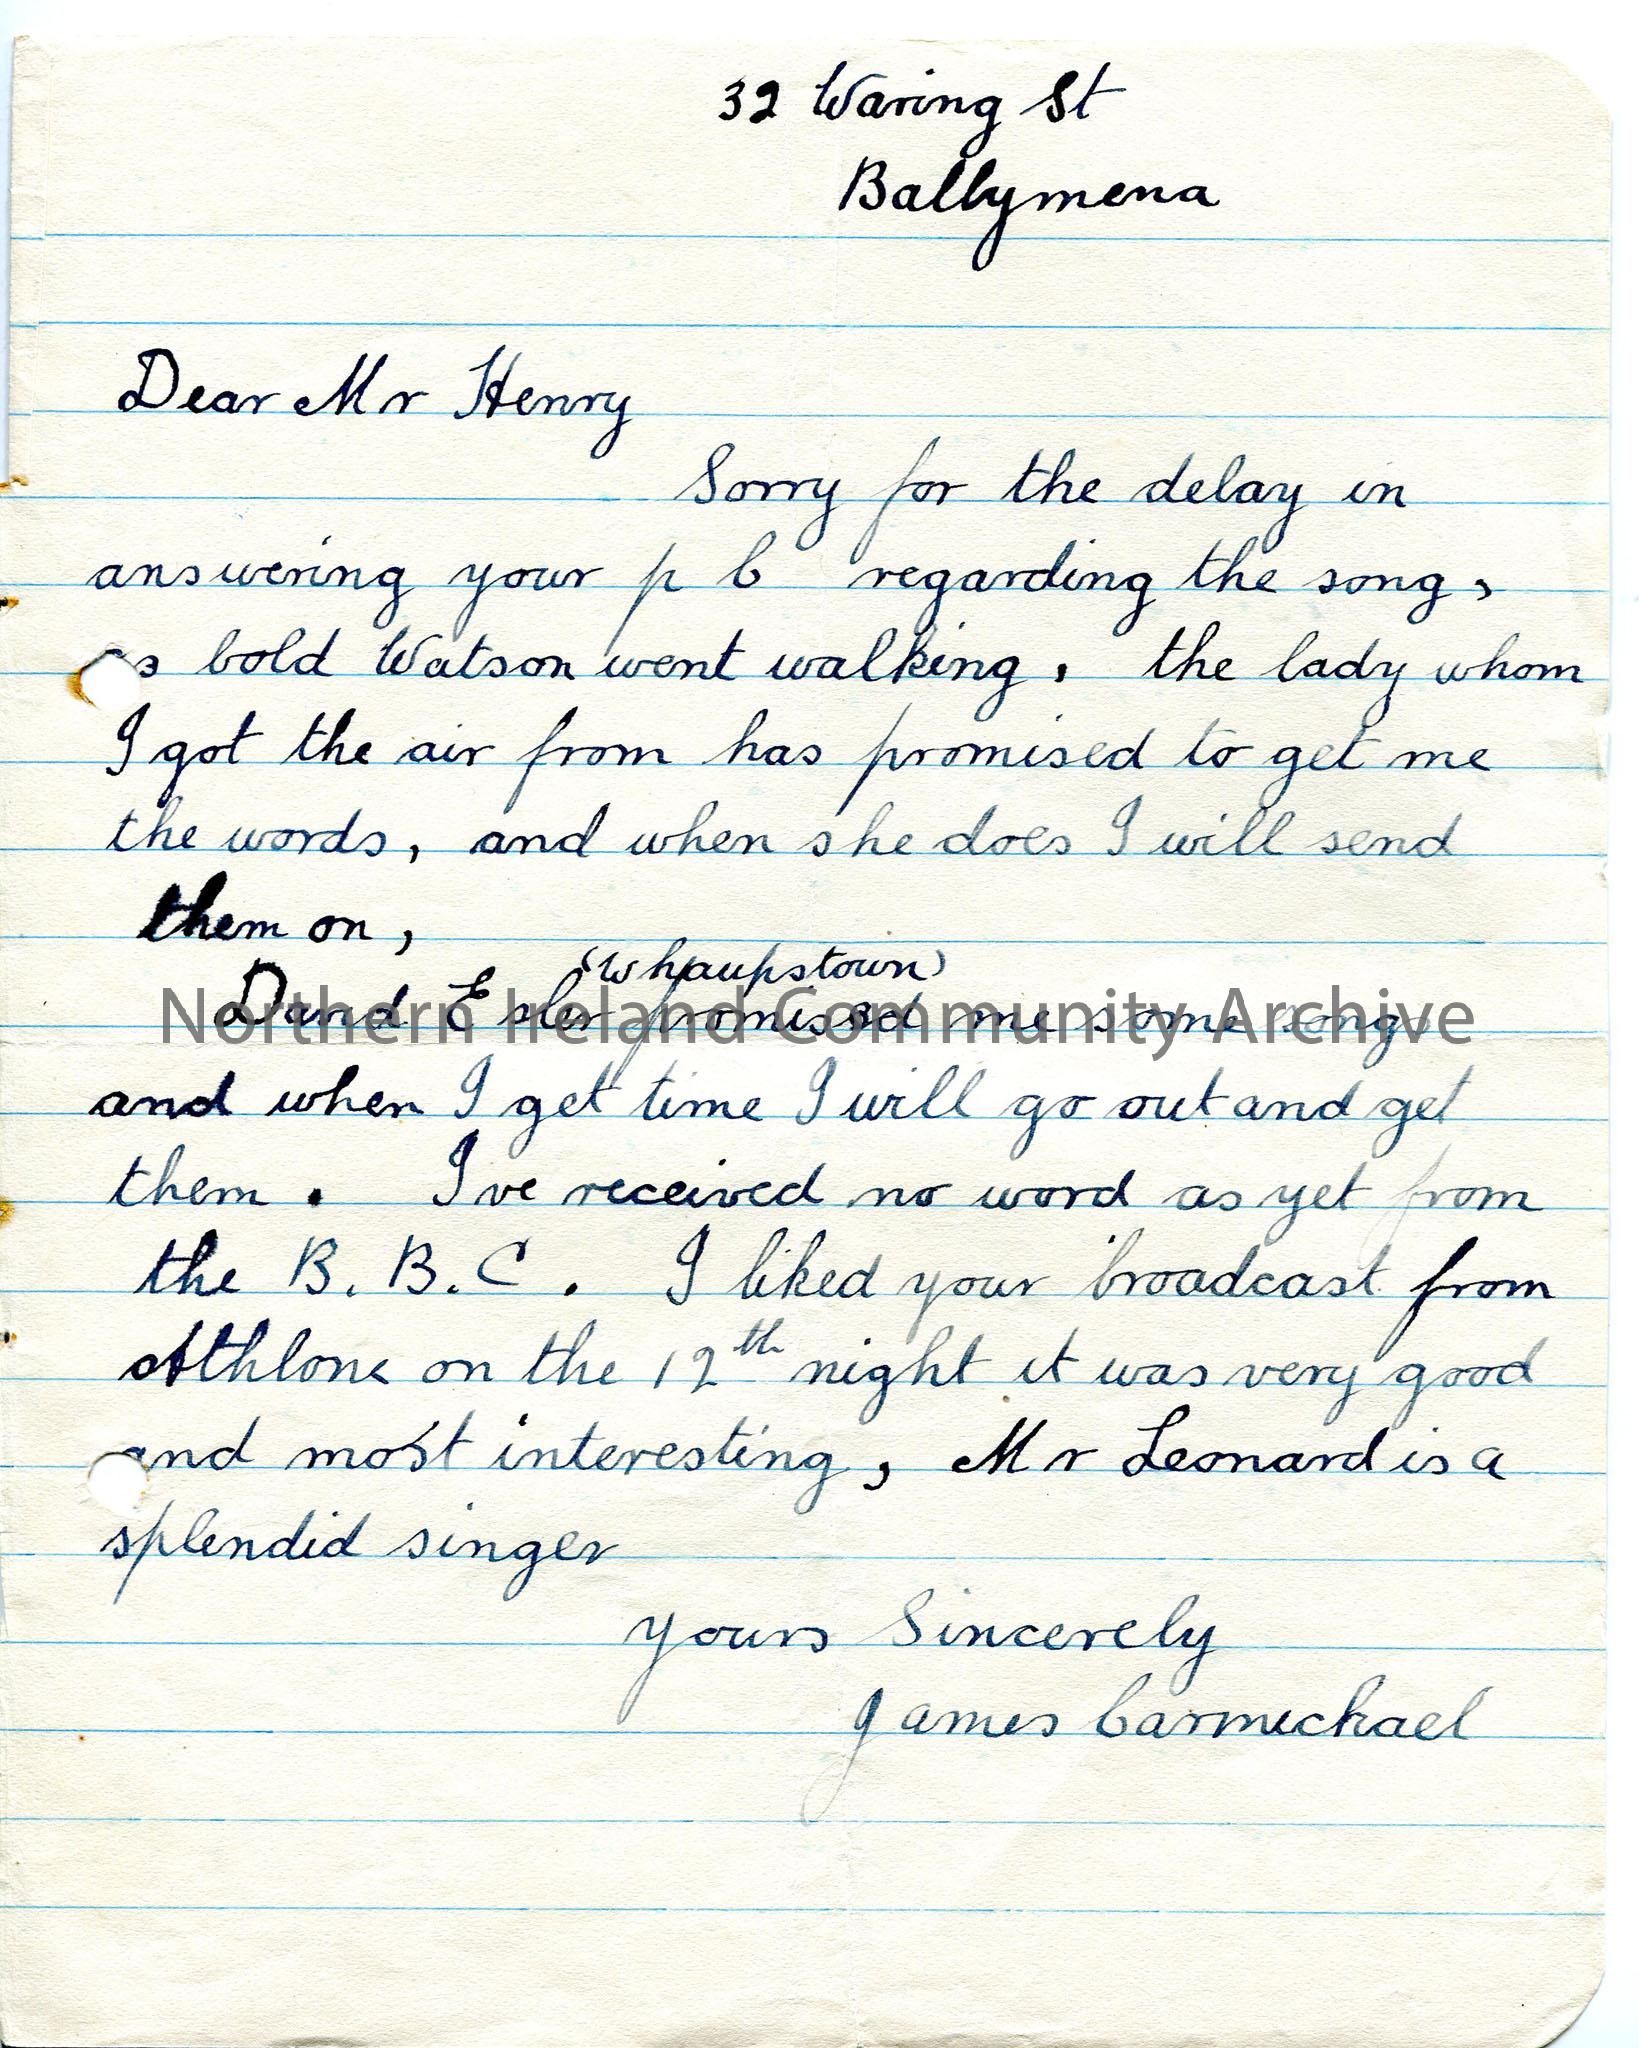 32 Waring St
Ballymena
Dear Mr Henry
Sorry for the delay in
answering your p c regarding the song,
as bold Watson went walking, the lady whom
I got the air from has promised to get me
the words, and when she does I will send
them on,
(Whaupstown)
David Esler promised me some songs
Northern Ireland Community Archive
and when I get time I will go out and get
them. I've received no word as yet from
the B.B.C. I liked your broadcast from
Athlone on the 12th night it was very good
and most interesting, Mr Leonard is a
splendid singer
yours Sincerely
James Carmichael